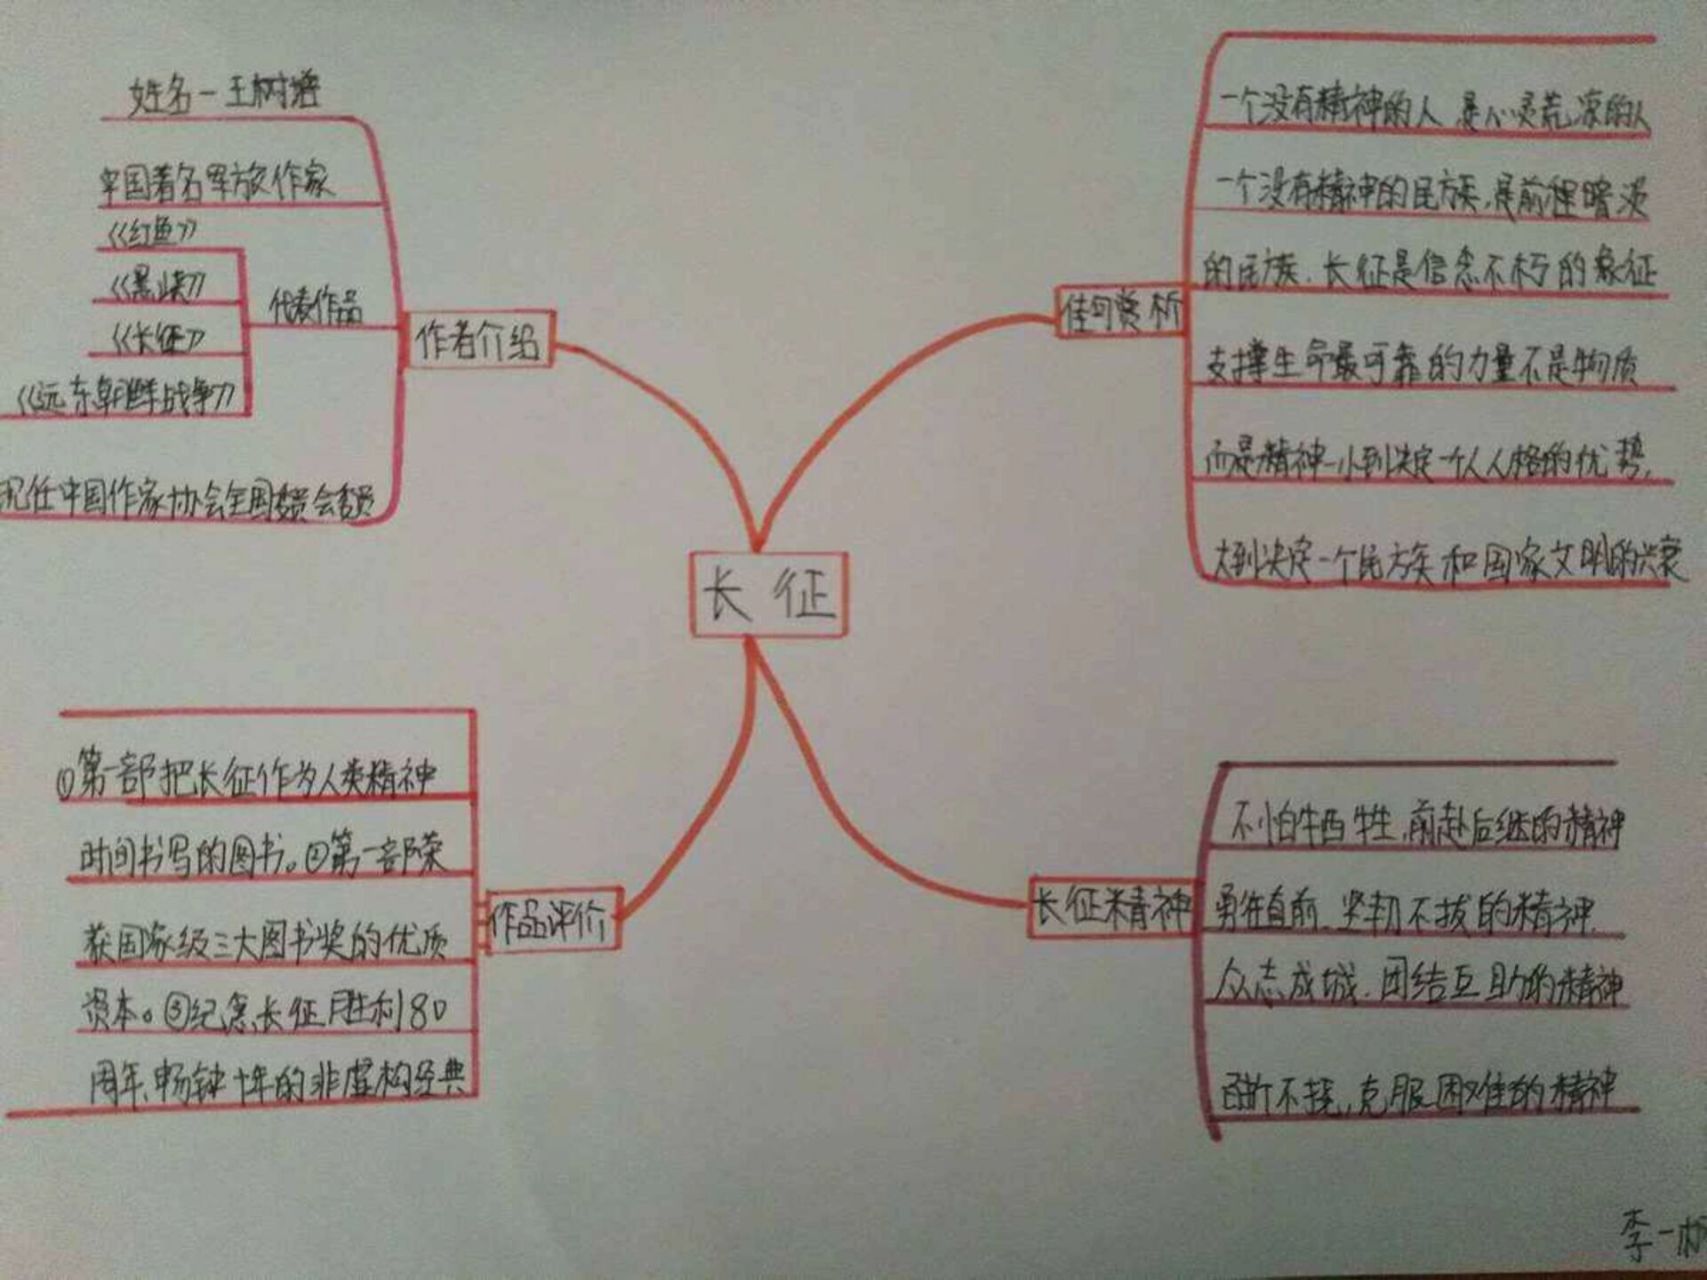 长征
作者介绍
姓名一王树增
中国著名军旅作家
代表作品
《红鱼》
《黑峡》
《长征》
《远东朝鲜战争》
现任中国作家协会全国委员会委员
佳句赏析
一个没有精神的人 是心灵荒凉的人
一个没有精神的民族,是前程暗淡
的民族.长征是信念不朽的象征
支撑生命最可靠的力量不是物质
而是精神一小到决定一个人人格的优势,
大到决定一个民族和国家文明的兴衰
作品评价
①第一部把长征作为人类精神
时间书写的图书。②第一部荣
获国家级三大图书奖的优质
资本。③纪念长征胜利80
周年、畅销十年的非虚构经典
长征精神
不怕牺牲,前赴后继的精神
勇往直前、坚韧不拔的精神.
众志成城.团结互助的精神
百折不挠,克服困难的精神
李一